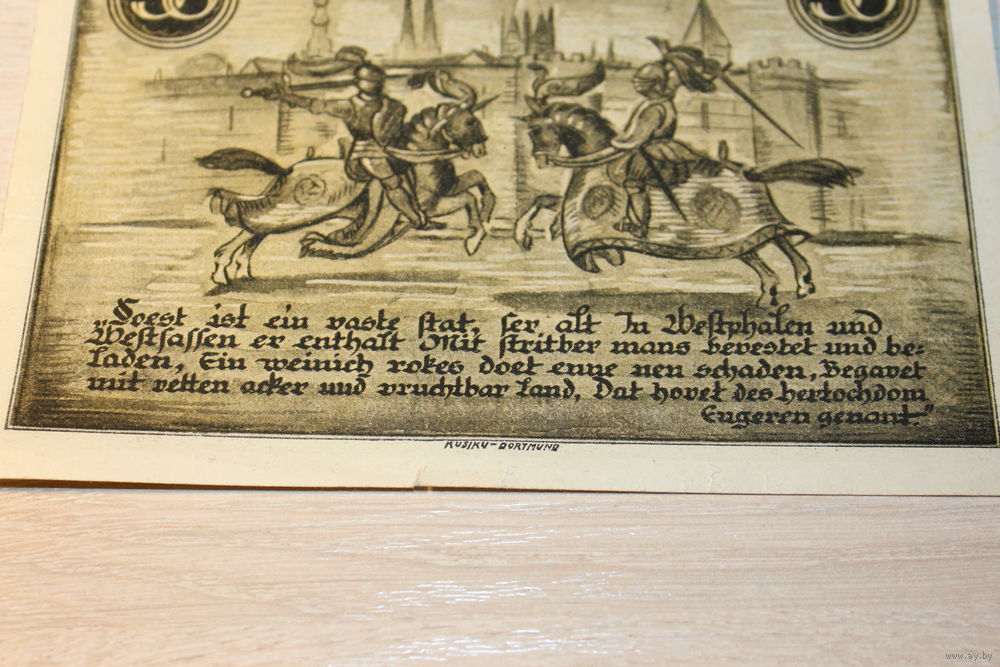 50
50
„Soest ist ein vaste stat, ser alt In Westphalen und
Westsassen er enthalt Mit stritber mans bevestet und be-
laden, Ein weinich rokes doet enne nen schaden, Begavet
mit vetten acker und vruchtbar land, Dat hovet des hertochdom
Engeren genant."
KUSIKU-DORTMUND
www.ay.by